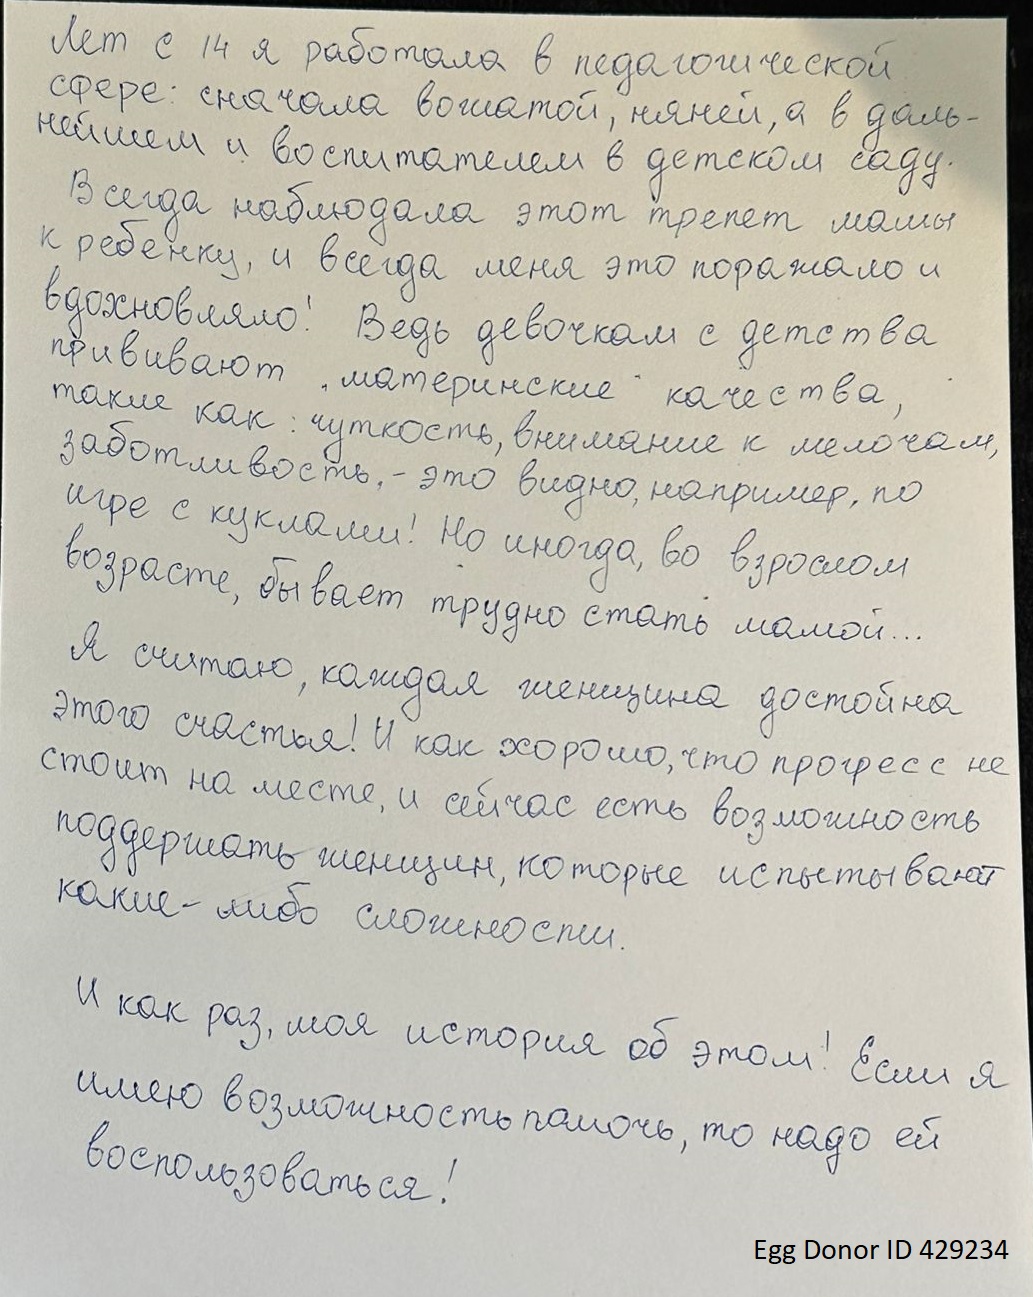 Лет с 14 я работала в педагогической
сфере: сначала вожатой, няней, а в даль-
нейшем и воспитателем в детском саду.
Всегда наблюдала этот трепет мамы
к ребенку, и всегда меня это поражало и
вдохновляло! Ведь девочкам с детства
прививают "материнские" качества,
такие как: чуткость, внимание к мелочам,
заботливость, - это видно, например, по
игре с куклами! Но иногда, во взрослом
возрасте, бывает трудно стать мамой...
Я считаю, каждая женщина достойна
этого счастья! И как хорошо, что прогресс не
стоит на месте, и сейчас есть возможность
поддержать женщин, которые испытывают
какие-либо сложности.
И как раз, моя история об этом! Если я
имею возможность помочь, то надо ей
воспользоваться!
Egg Donor ID 429234